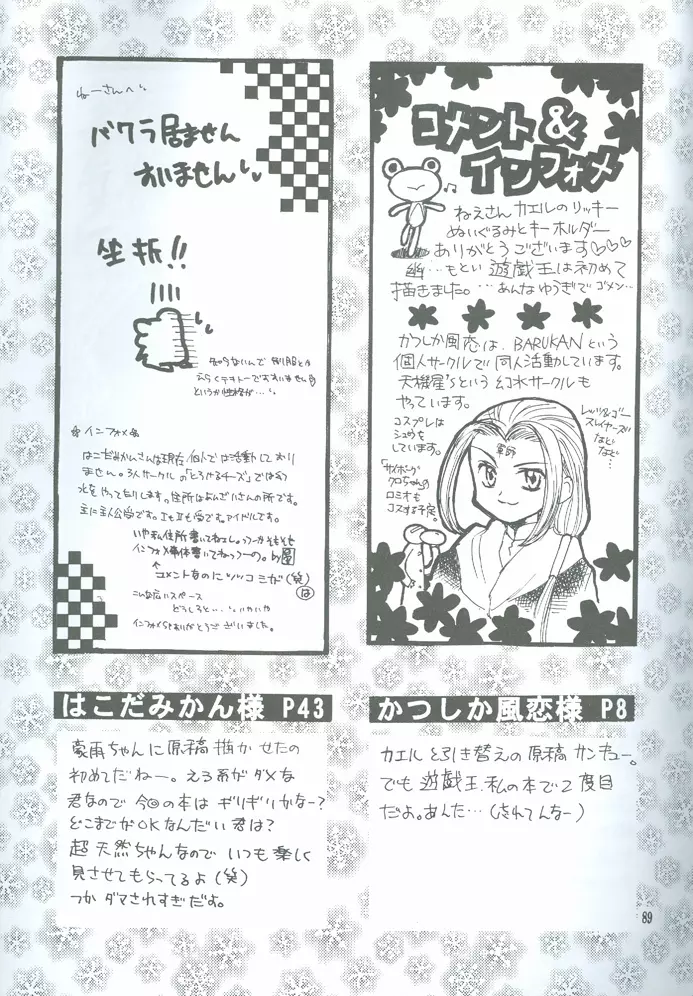 コメント&
インフォメ
ねえさん カエルのリッキー
ぬいぐるみとキーホルダー
ありがとうございます♡♡♡
幽…もとい 遊戯王は初めて
描きました。…あんなゆうぎでゴメン…
かつしか風恋は、BARUKANという
個人サークルで同人活動しています。
天機星'sという幻水サークルも
やっています。
コスプレは
シュウを
しています。
ロミオも
コスする予定。
レッツ&ゴー
スレイヤーズ
など
など…
軍師
かつしか風恋様 P8
カエルと引き替えの原稿サンキュー。
でも遊戯王、私の本で2度目
だよ。あんた…(忘れてんなー)
ねーさんへ
バクラ居ません
すいません
坐折!!
知らないんで制服とか
えらくテキトーですすいません
というか性格が…
インフォメ
はこだみかんさんは現在個人では活動しており
ません。3人サークルの「とろけるチーズ」では幻
水をやってたりします。住所はよんどいさんの所です。
主に主人公受です。IもIIも受です。アイドルです。
いや私住所書いてねェしょっつーかそもそも
インフォメ自体書いてねっつーの。by
コメントなのにツッコミが(笑)
は
こんな広いスペース
どうしろと…いやいや
インフォメもありがとうございました。
はこだみかん様 P43
豪雨ちゃんに原稿描かせたの
初めてだねー。えろ系がダメな
君なので今回の本はギリギリかなー?
どこまでがOKなんだい君は?
超天然ちゃんなのでいつも楽しく
見させてもらってるよ(笑)
つかダマされすぎだよ。
89